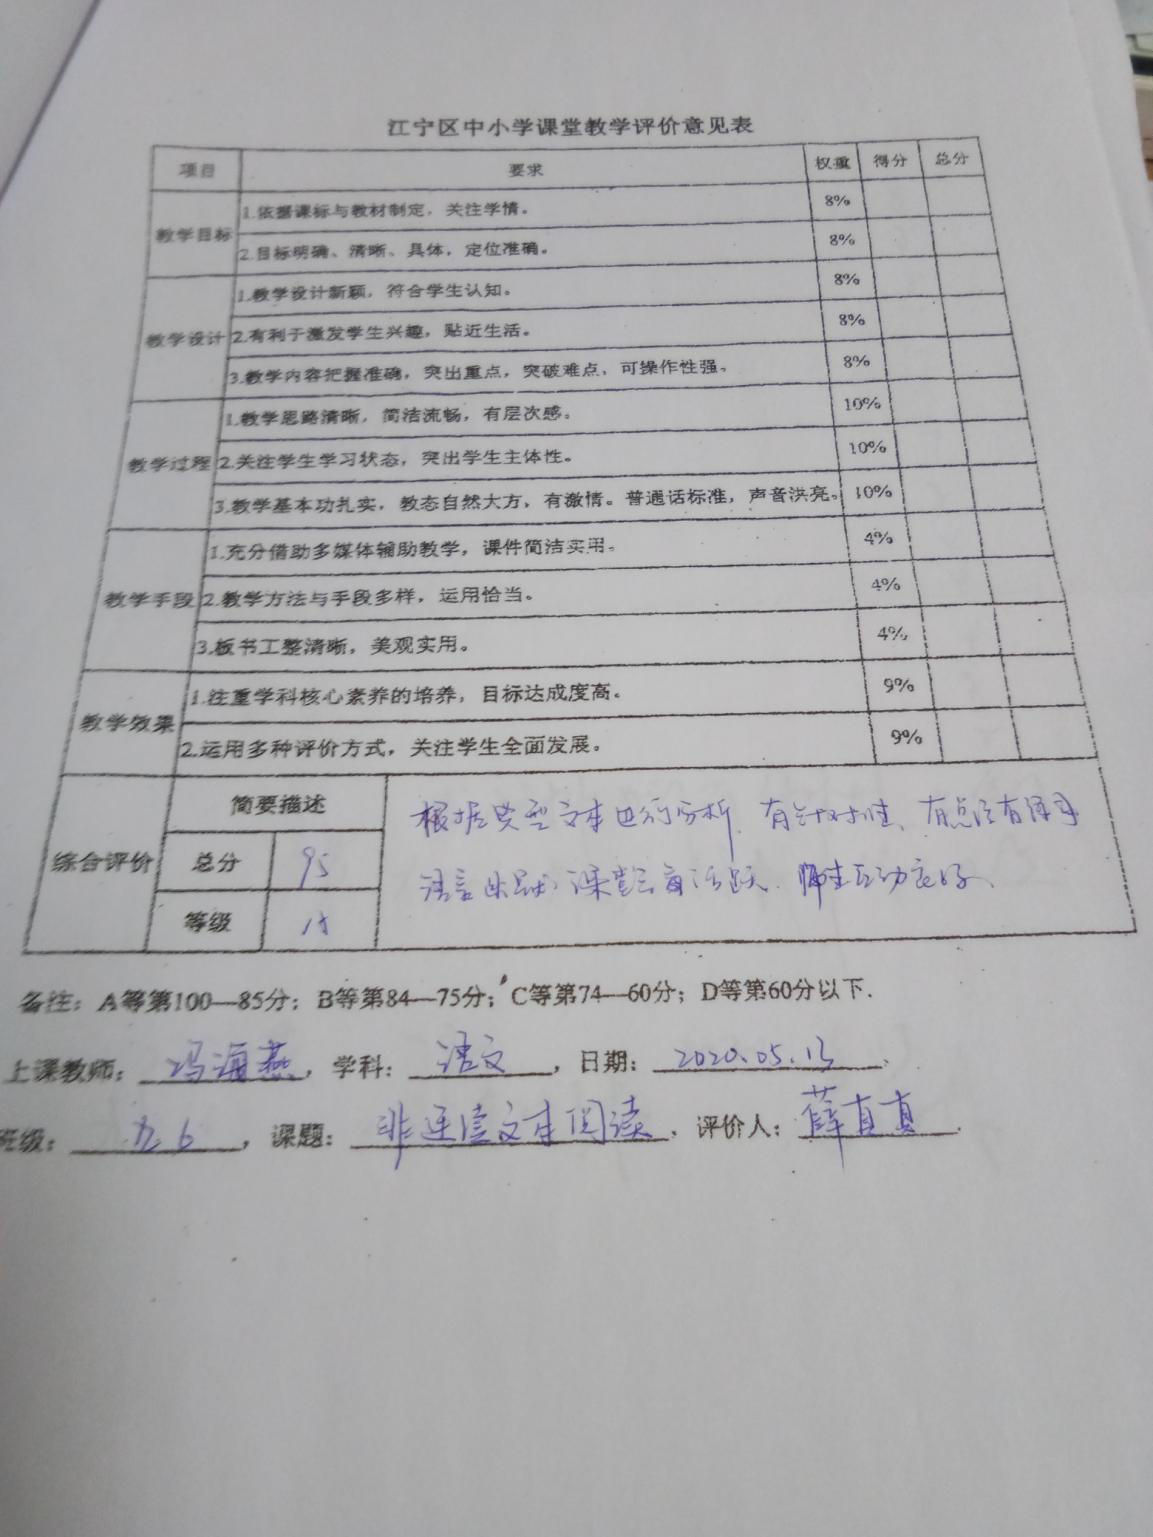 江宁区中小学课堂教学评价意见表
项目 要求 权重 得分 总分
教学目标
1.依据课标与教材制定，关注学情。 8%
2.目标明确、清晰、具体，定位准确。 8%
教学设计
1.教学设计新颖，符合学生认知。 8%
2.有利于激发学生兴趣，贴近生活。 8%
3.教学内容把握准确，突出重点，突破难点，可操作性强。 8%
教学过程
1.教学思路清晰，简洁流畅，有层次感。 10%
2.关注学生学习状态，突出学生主体性。 10%
3.教学基本功扎实，教态自然大方，有激情。普通话标准，声音洪亮。 10%
教学手段
1.充分借助多媒体辅助教学，课件简洁实用。 4%
2.教学方法与手段多样，运用恰当。 4%
3.板书工整清晰，美观实用。 4%
教学效果
1.注重学科核心素养的培养，目标达成度高。 9%
2.运用多种评价方式，关注学生全面发展。 9%
综合评价
简要描述
总分 95
等级
根据典型文本进行分析，有针对性、有点有
语言 课堂 活跃、师生互动良好、
备注：A等第100—85分；B等第84—75分；C等第74—60分；D等第60分以下.
上课教师：冯海燕，学科：语文，日期：2020.05.13.
班级：九6，课题：非连续文本阅读，评价人：薛真真.